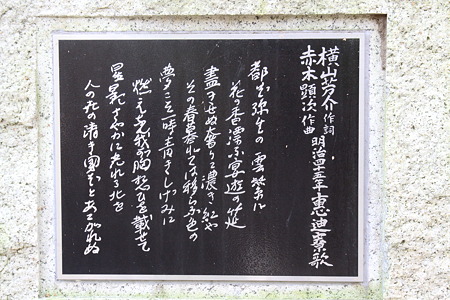 横山芳介 作詞
赤木顕次 作曲
明治四五年 恵迪寮歌
都ぞ弥生の 雲紫に
花の香漂ふ宴遊の筵
尽きせぬ奢りに濃き紅や
その春暮れては移らふ色の
夢こそ一時青き繁みに
燃えなん我胸想ひを載せて
星影さやかに光れる北を
人の世の清き国ぞとあこがれぬ